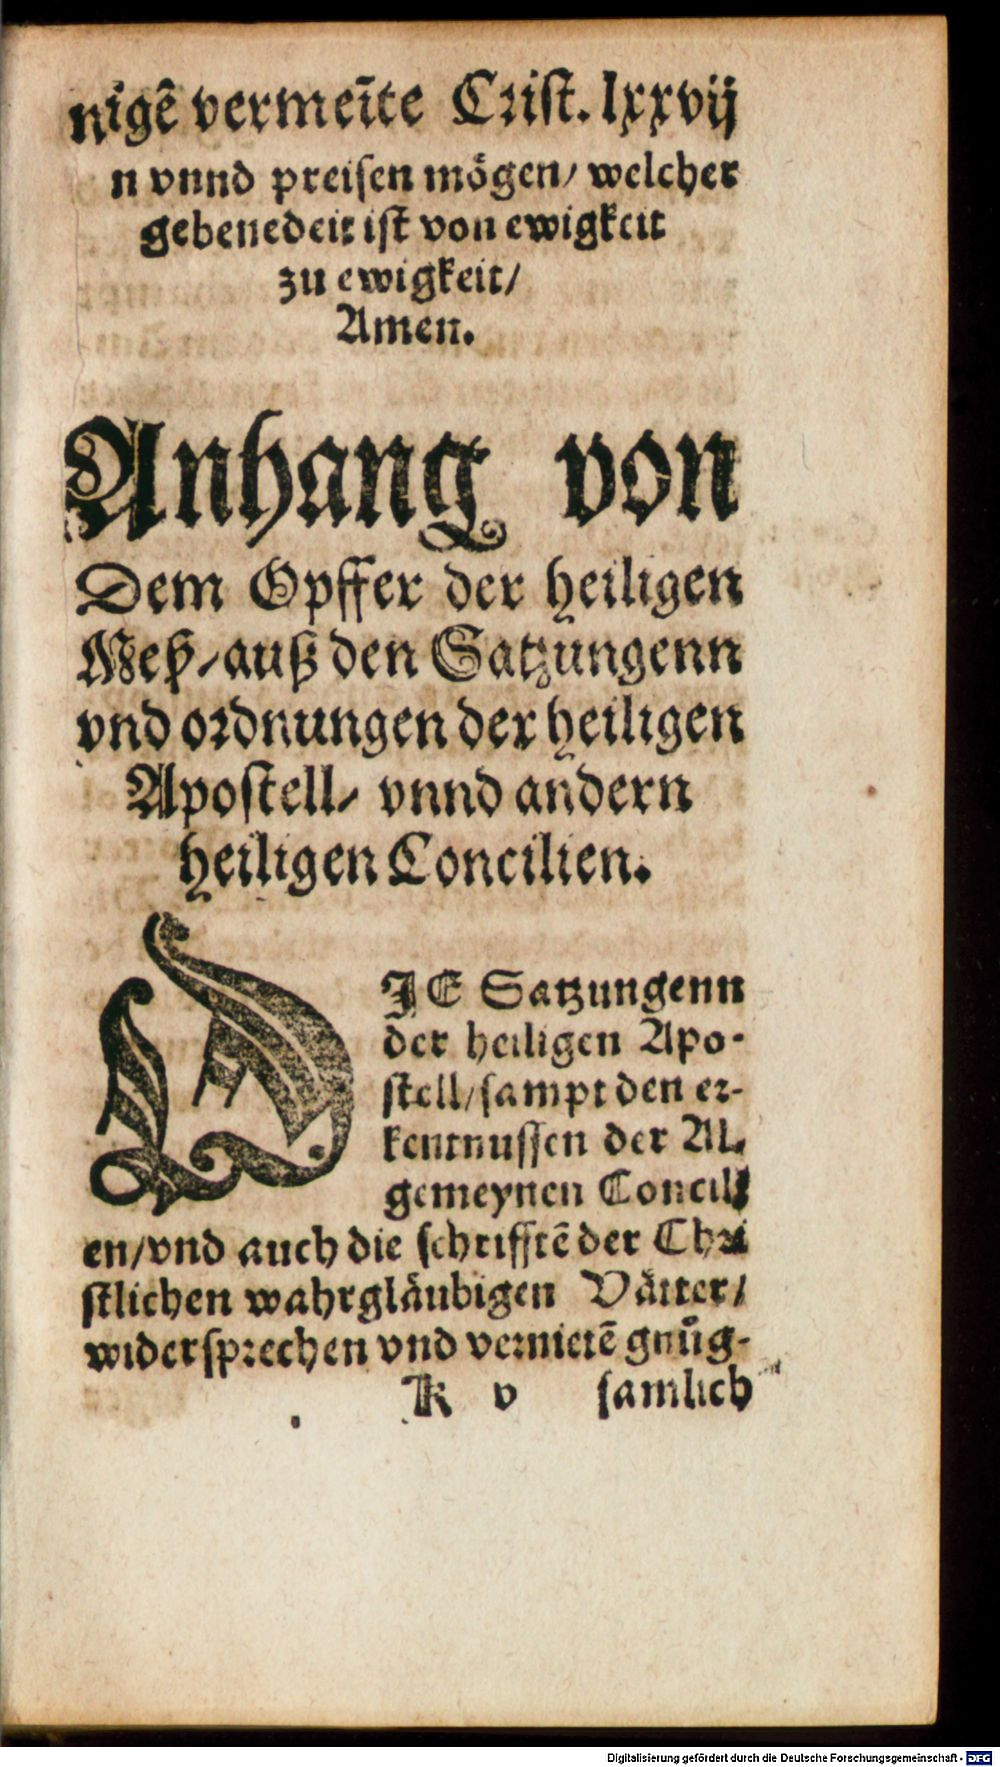 nigẽ vermeĩte Crist. lxxvij
n vnnd preisen mögen/ welcher
gebenedeit ist von ewigkeit
zu ewigkeit/
Amen.
Anhang von
Dem Opffer der heiligen
Meß/ auß den Satzungenn
vnd ordnungen der heiligen
Apostell/ vnnd andern
heiligen Concilien.
DIE Satzungenn
der heiligen Apo-
stell/ sampt den er-
kentnussen der Al-
gemeynen Concili
en/ vnd auch die schrifftẽ der Chri
stlichen wahrgläubigen Vätter/
widersprechen vnd vernietẽ gnůg-
K v samlich
Digitalisierung gefördert durch die Deutsche Forschungsgemeinschaft - DFG